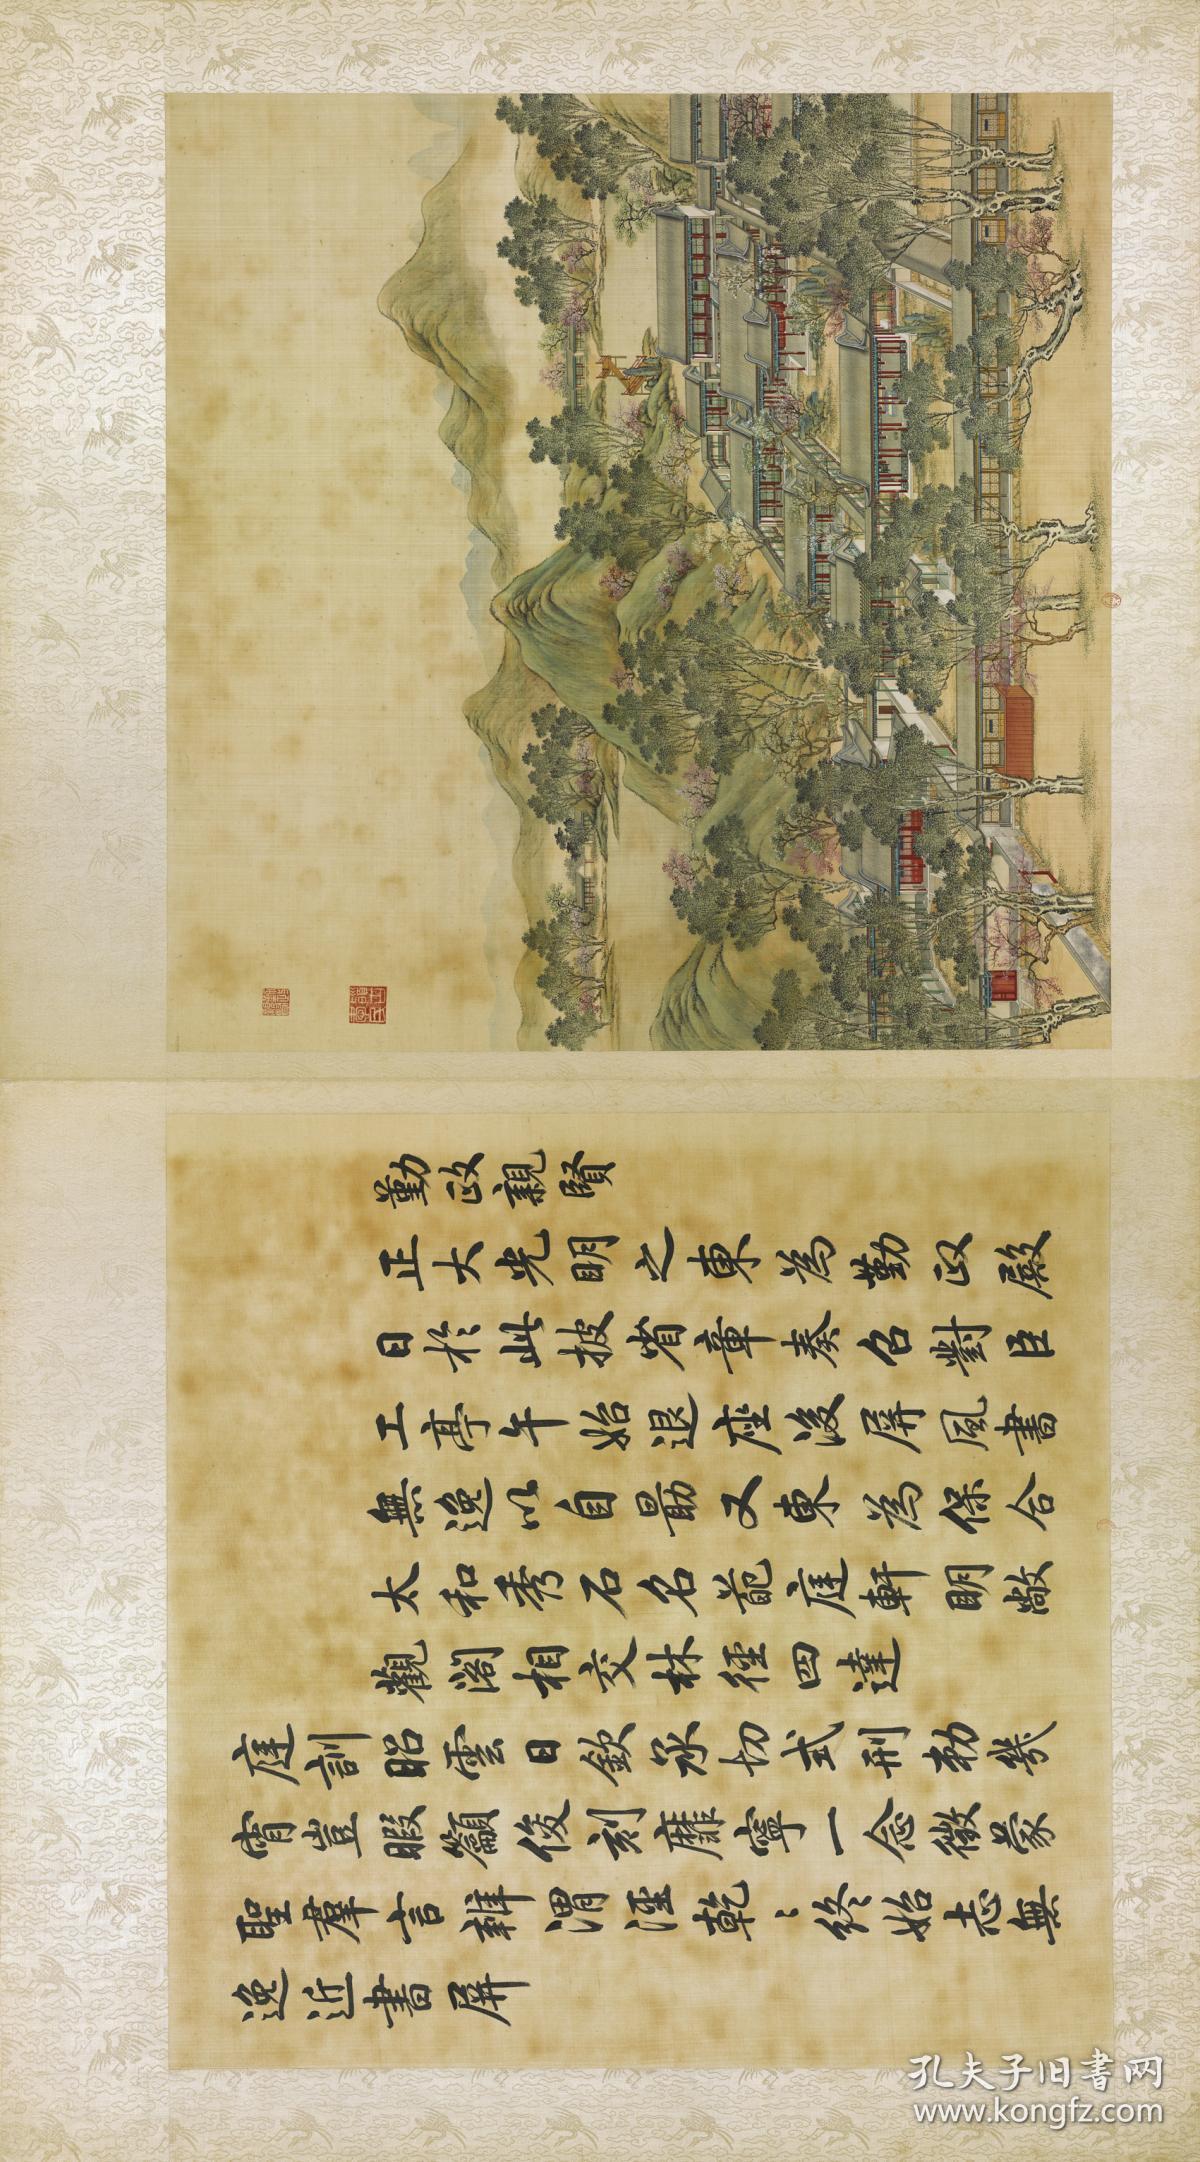 勤政親賢
正大光明之東為勤政殿
日於此披省章奏召對臣
工亭午始退座後屏風書
無逸以自勗又東為保合
太和秀石名葩庭軒明敞
觀閣相交林徑四達
庭訓昭雲日欽承切式刑勅幾
宵豈暇籲俊刻靡寧一念徵蒙
聖羣言辨渭涇乾〻終始志無
逸近書屏
孔夫子旧書网
www.kongfz.com